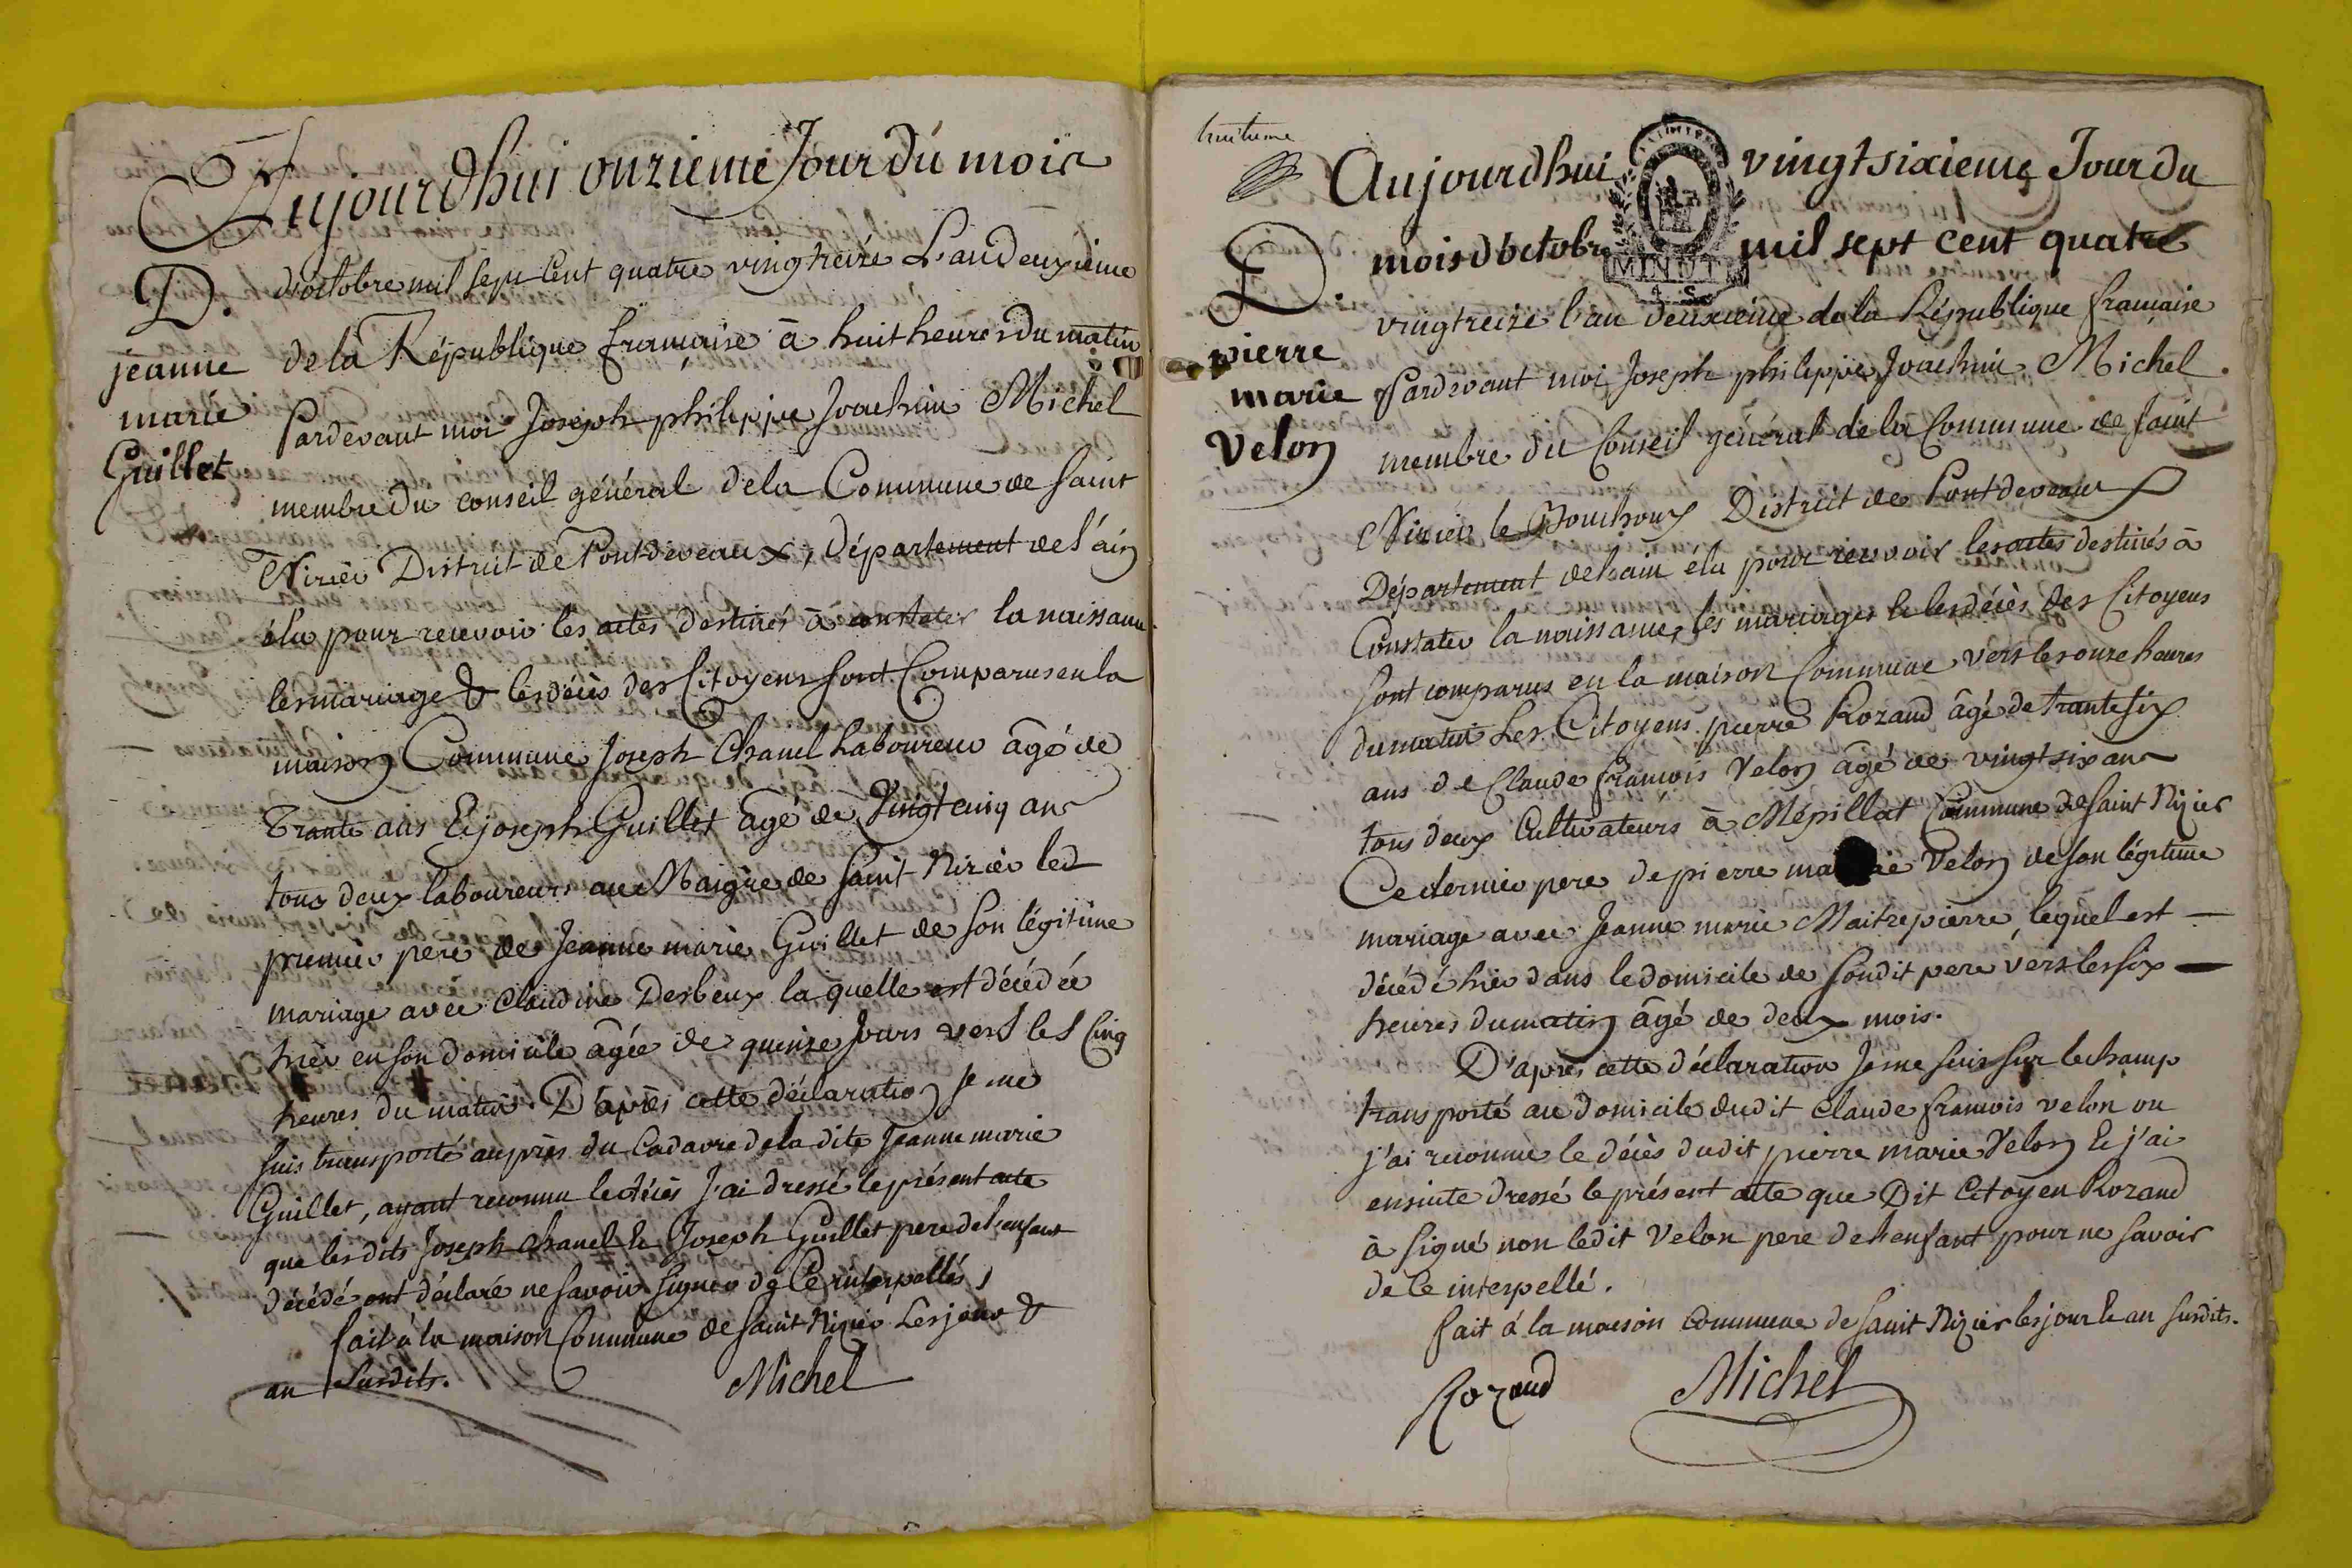 Aujourdhui onzieme Jour du mois
D.
jeanne
marie
Guillet
d'octobre mil sept Cent quatre vingt treize L'an deuxieme
de la République française à huit heures du matin
Pardevant moi Joseph philippe Joachim Michel
membre du conseil général de la Commune de Saint
Nizier District de Pontdevaux, département de l'ain
élu pour recevoir les actes destinés à constater la naissance
les mariage & les décès des Citoyens sont Comparus en la
maison Commune Joseph Chanel Laboureur âgé de
Trante ans Et joseph Guillet âgé de Vingt cinq ans
tous deux laboureurs au de Saint-Nizier led
premier pere de Jeanne marie Guillet de son légitime
mariage avec Claudine Desbeux la quelle est décédée
hier en son domicile âgée de quinze Jours vers les Cinq
heures du matin. D'après cette déclaration Je me
suis transporté auprès du Cadavre de la dite Jeanne marie
Guillet, ayant reconnu le décès J'ai dressé le présent acte
que les dits Joseph Chanel & Joseph Guillet pere de l'enfant
décédé ont déclaré ne savoir signer de Ce interpellés,
fait à la maison Commune de Saint Nizier Les jour &
an Susdits.
Michel
huitieme
Aujourdhui vingtsixieme Jour du
D.
pierre
marie
Velon
mois d'octobre mil sept cent quatre
MINUTE
4 S.
vingt treize l'an deuxieme de la République française
Pardevant moi Joseph philippe Joachim Michel
membre du Conseil général de la Commune de Saint
Nizier le Bouchoux District de Pontdevaux
Département de l'ain élu pour recevoir les actes destinés à
Constater la naissance, les mariages & les décès des Citoyens
sont comparus en la maison Commune vers les onze heures
du matin Les Citoyens pierre Rozand âgé de trante six
ans & Claude francois Velon âgé de vingt six ans
tous deux Cultivateurs à Mépillat Commune de Saint Nizier
Ce dernier pere de pierre marie Velon de son légitime
mariage avec Jeanne marie Maitrepierre, lequel est
décédé hier dans le domicile de sondit pere vers les six
heures du matin âgé de deux mois.
D'après cette déclaration Je me suis sur le champ
transporté au domicile dudit Claude francois velon ou
j'ai reconnu le décès dudit pierre marie Velon & j'ai
ensuite dressé le présent acte que Dit Citoyen Rozand
à signé non ledit Velon pere de l'enfant pour ne savoir
de Ce interpellé.
fait à la maison Commune de Saint Nizier les jour & an susdits.
Rozand Michel